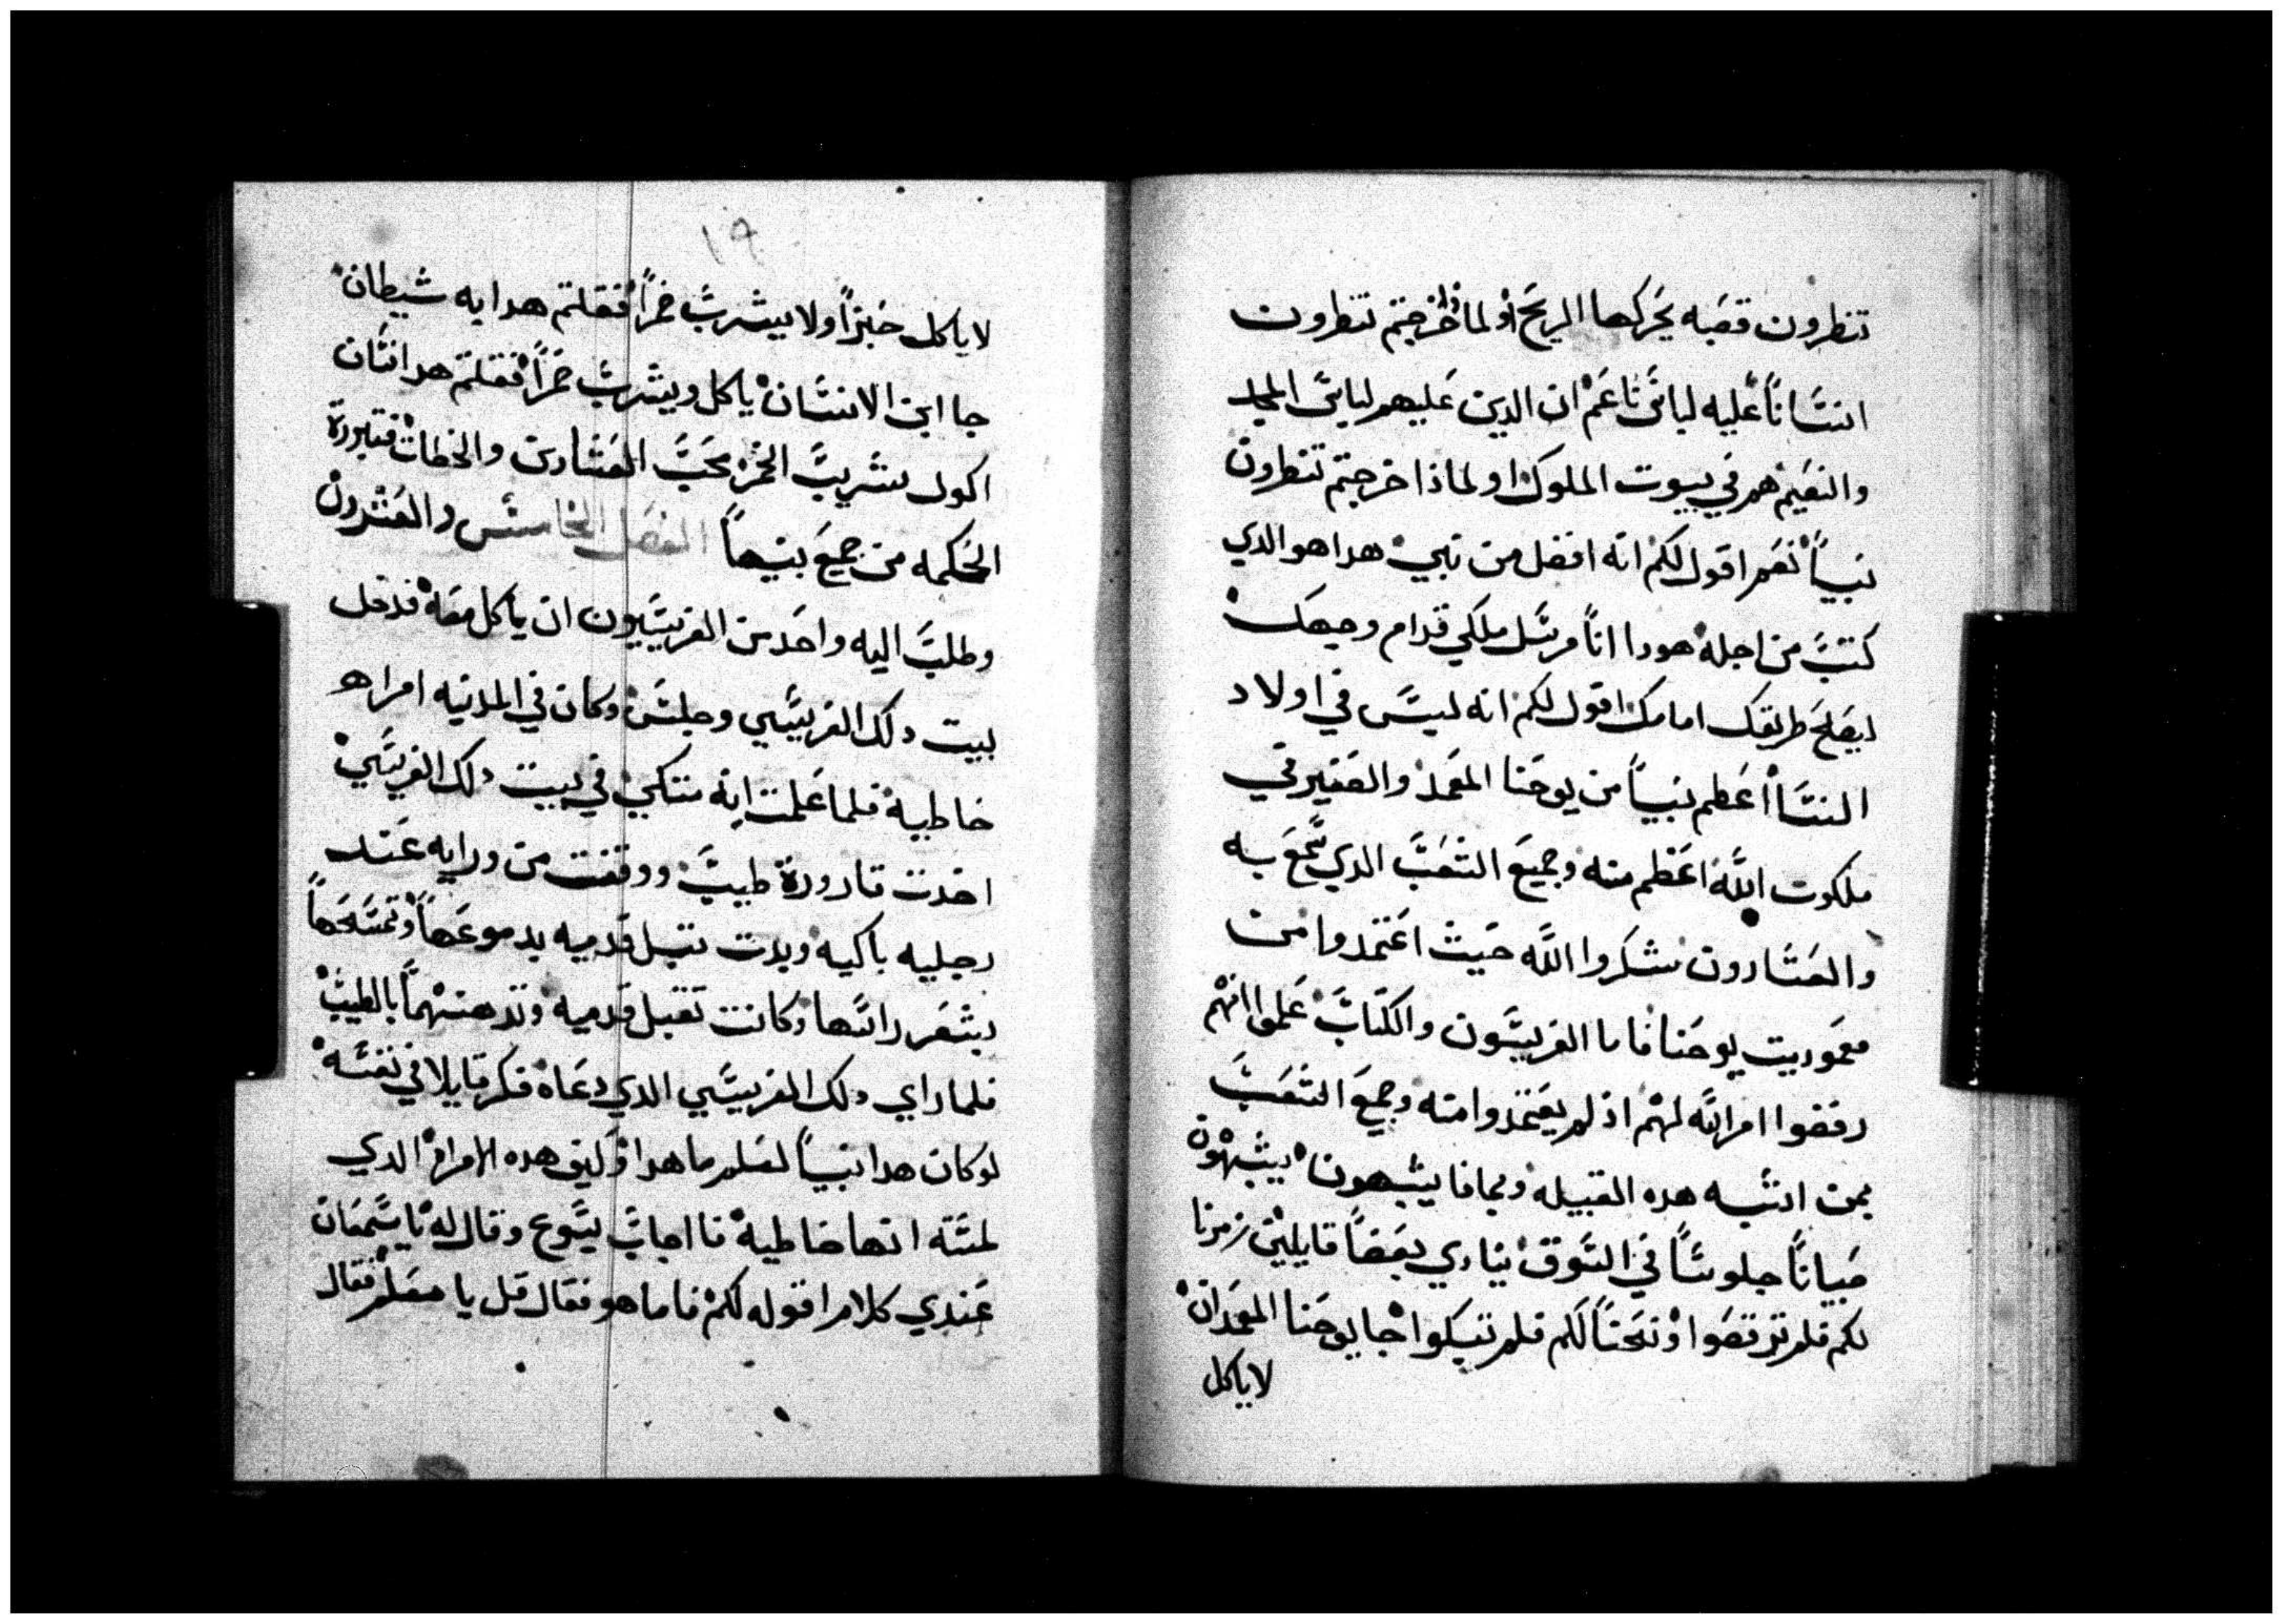 تنظرون قصبه يحركها الريح او لماذا خرجتم تنظرون
انسانا عليه لباس ناعم ان الدين عليهم لباس المجد
والنعيم هم في بيوت الملوك او لماذا خرجتم تنظرون
نبيا نعم اقول لكم انه افضل من نبي هدا هو الدي
كتب من اجله هودا انا مرسل ملكي قدام وجهك
ليصلح طريقك امامك اقول لكم انه ليس في اولاد
النسا اعظم نبيا من يوحنا المعمد والصغير في
ملكوت الله اعظم منه وجميع الشعب الدي سمع به
والعشارون شكروا الله حيث اعتمدوا من
معموديت يوحنا فاما الفريسون والكتاب علموا انهم
رفضوا امر الله لهم اذ لم يعتمدوا منه وجميع الشعب
بمن اشبه هده القبيله وبمادا يشبهون يشبهون
صبيانا جلوسا في السوق ينادي بعضا قايلين زمرنا
لكم فلم ترقصوا ونحنا لكم فلم تبكوا جا يوحنا المعمدان
لا ياكل
١٩
لا ياكل خبزا ولا يشرب خمرا فقلتم هدا به شيطان
جا ابن الانسان ياكل ويشرب خمرا فقلتم هدا انسان
اكول شريب الخمر محب العشارين والخطات فتبررة
الحكمه من جميع بنيها الفصل الخامس والعشرون
وطلب اليه واحد من الفريسيون ان ياكل معه فدخل
بيت دلك الفريسي وجلس وكان في المدينه امراه
خاطيه فلما علمت انه متكي في بيت دلك الفريسي
اخدت قارورة طيب ووقفت من ورايه عند
رجليه باكيه وبدت تبل قدميه بدموعها وتمسحها
بشعر راسها وكانت تقبل قدميه وتدهنهما بالطيب
فلما راي دلك الفريسي الدي دعاه فكر قايلا في نفسه
لو كان هدا نبيا لعلم ما هدا وكيف هده الامراه الدي
لمسته انها خاطيه فا اجاب يسوع وقال له يا سمعان
عندي كلام اقوله لكم فاما هو فقال قل يا معلم فقال